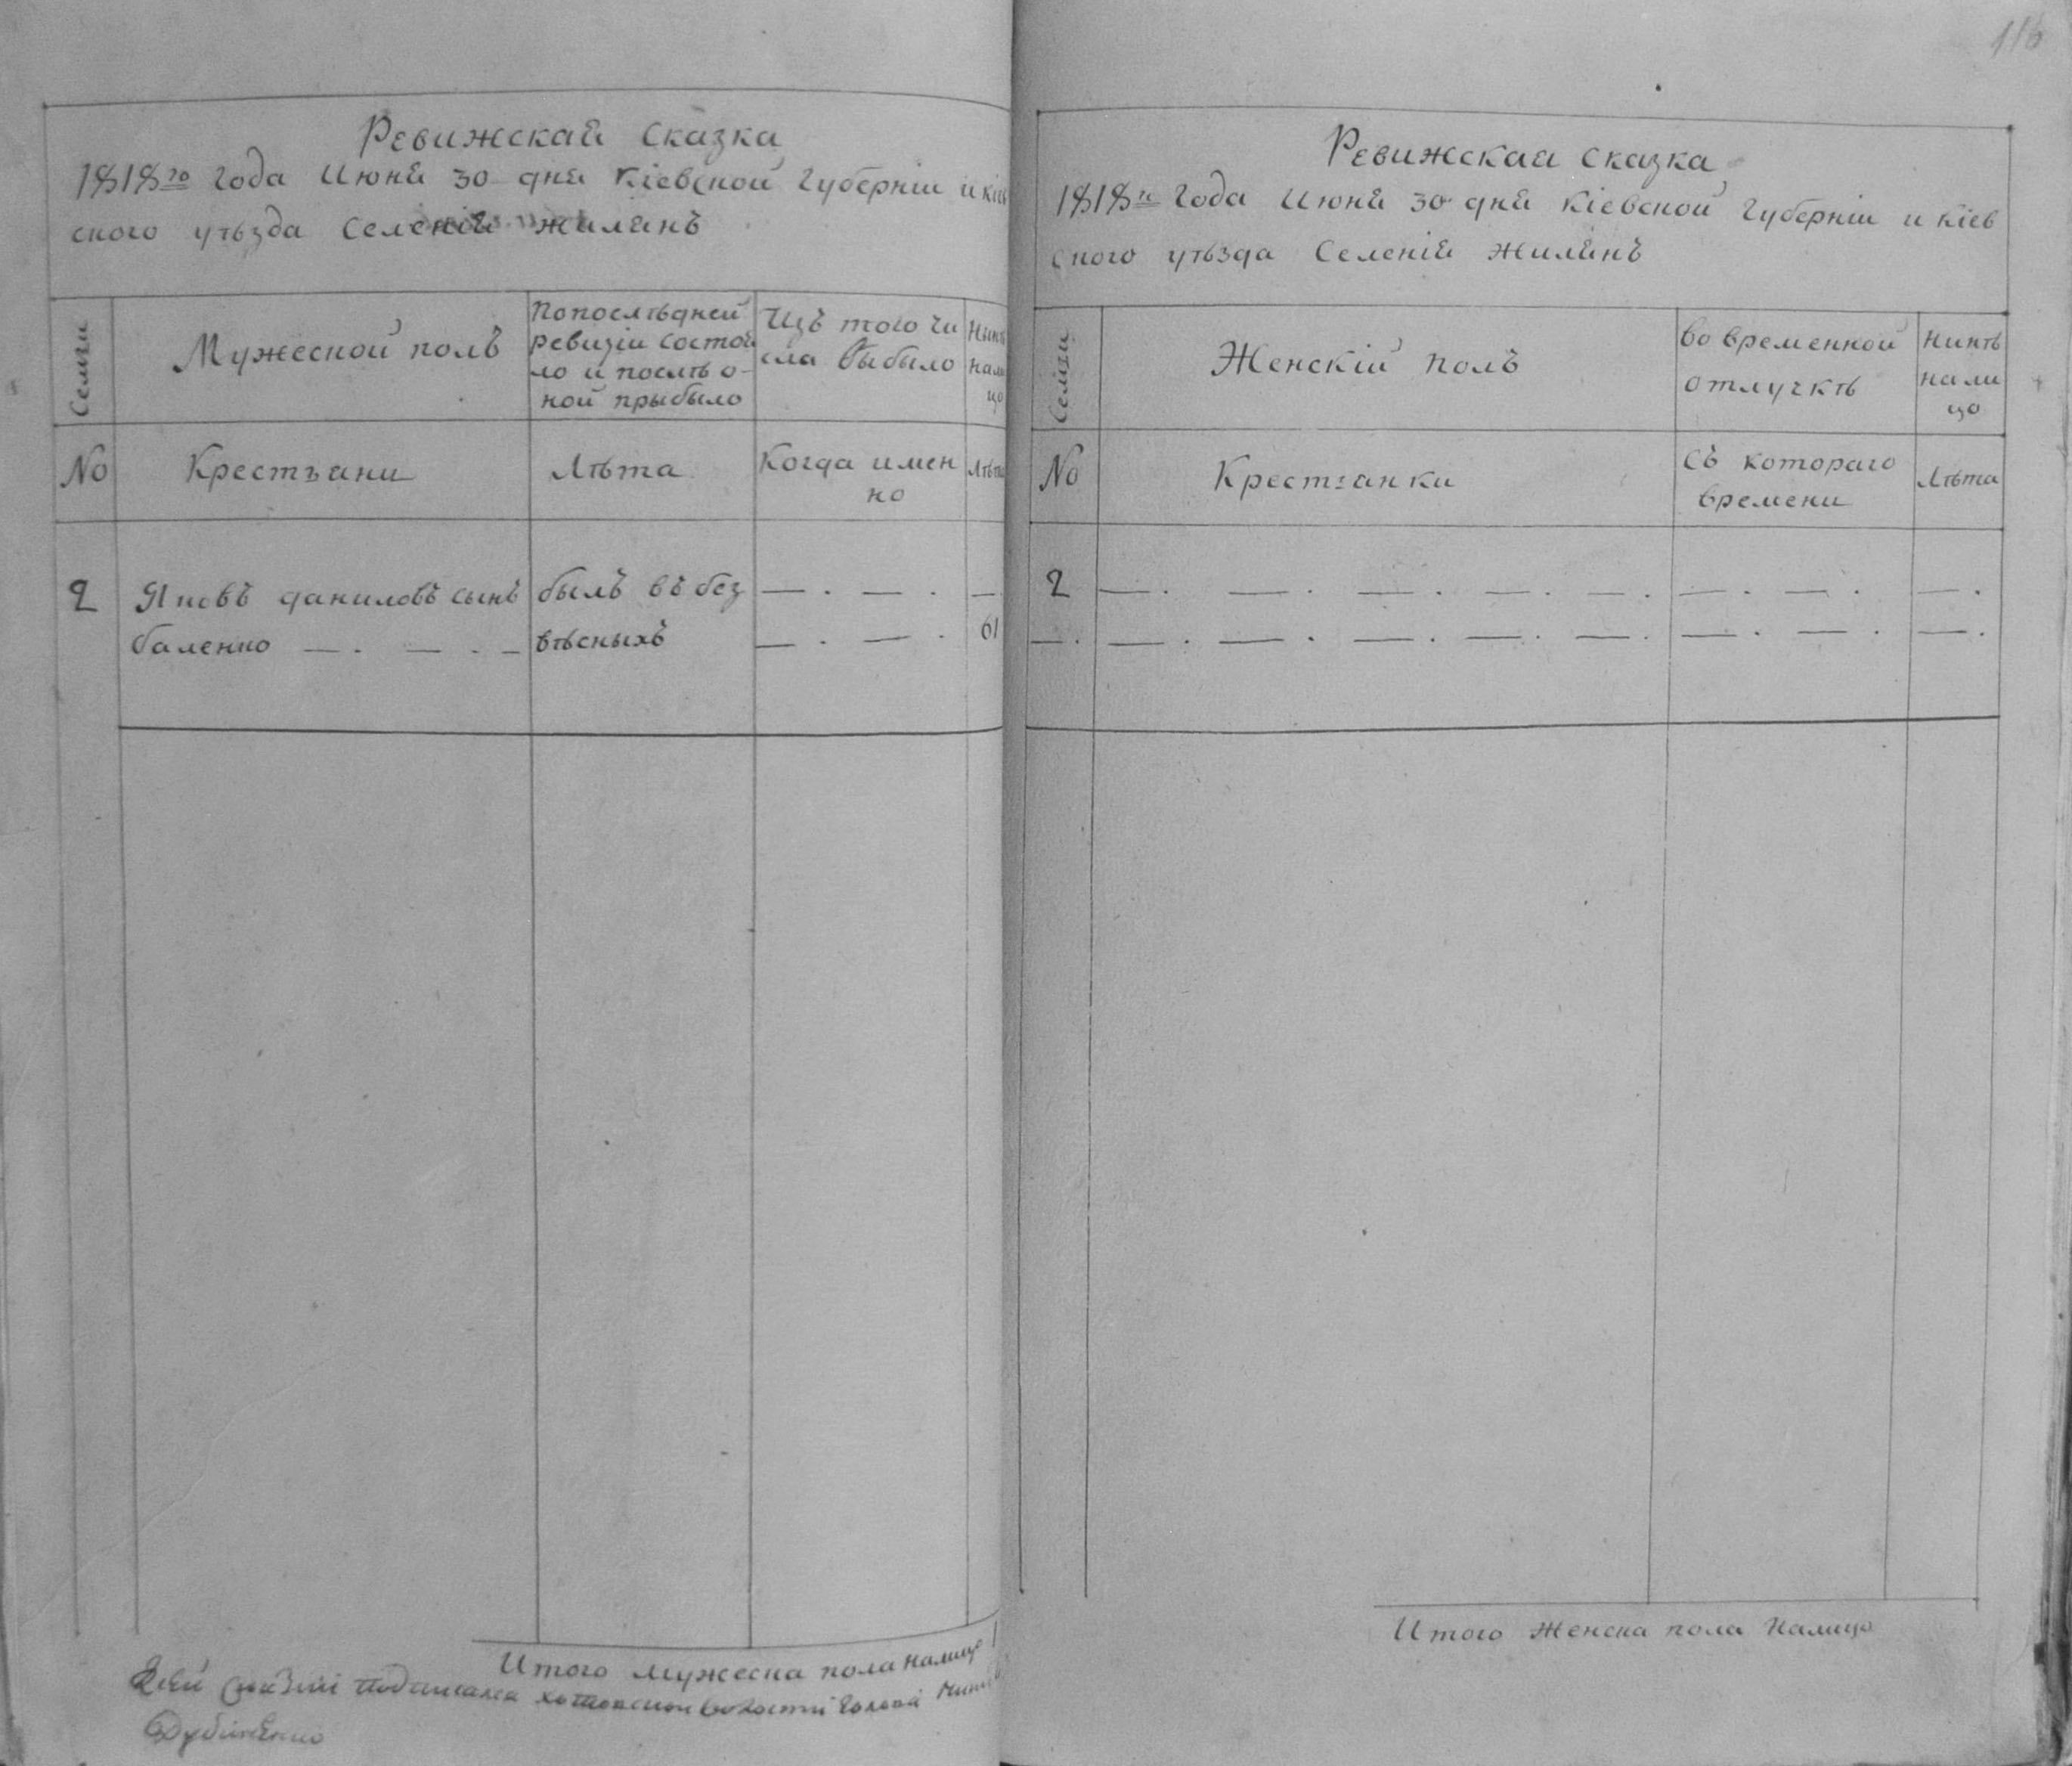 Ревижская Сказка
1818го Года Июня 30 дня Кіевской Губерніи и Кіев
ского уѣзда Селенія Жилянъ
Семьи
Мужеской полъ
По последней
ревизіи состоя
ло и послѣ о-
ной прыбыло
Изъ того чи
сла выбыло
Нинѣ
нали
цо
No
Крестъяни
Лѣта
Когда имен
но
Лѣта
2
Яковъ даниловъ сынъ
баленко — . — . —
былъ въ без
вѣсныхъ
— . — . —
— . — . 61
Итого мужеска пола налицо 1
Дубинenko
116
Ревижская Сказка
1818го Года Июня 30 дня Кіевской Губерніи и Кіев
ского уѣзда Селенія Жилянъ
Семьи
Женскій полъ
во временной
отлучкѣ
Нинѣ
нали
цо
No
Крестъянки
съ котораго
времени
Лѣта
2 — . — . — . — . — . — . — . — .
— . — . — . — . — . — . — . — . — .
Итого Женска пола Налицо